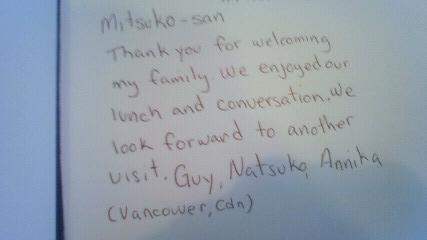 Mitsuko-san
Thank you for welcoming
my family. We enjoyed our
lunch and conversation. We
look forward to another
visit. Guy, Natsuko, Annika
(Vancouver, Cdn)